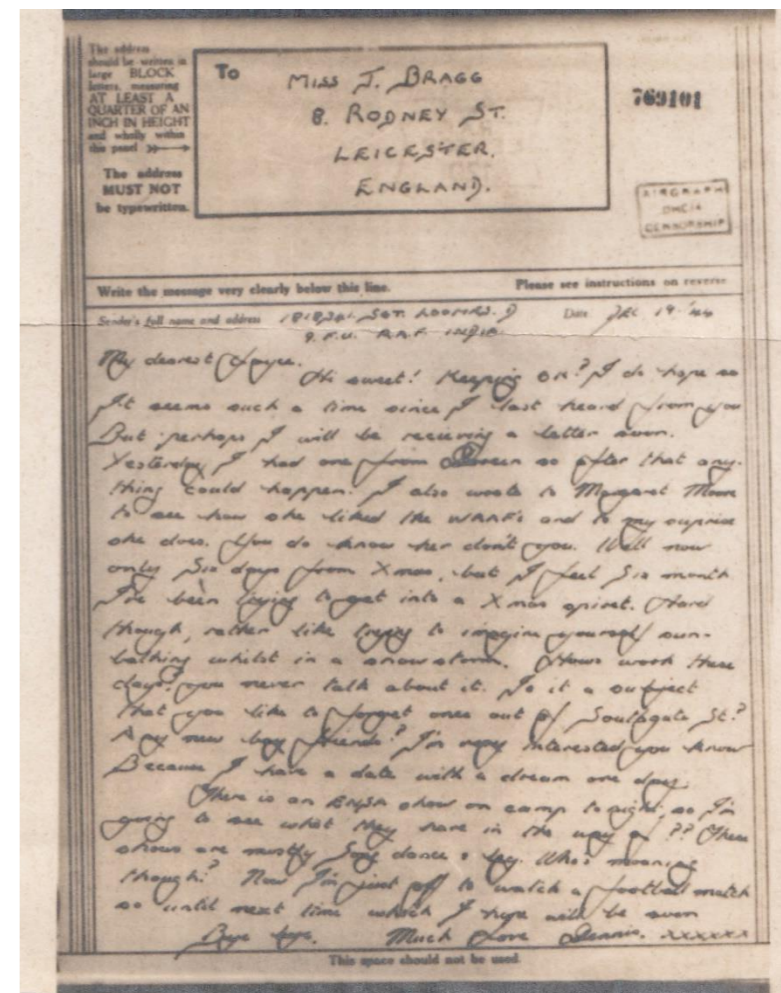 The address
should be written in
large BLOCK
letters, measuring
AT LEAST A
QUARTER OF AN
INCH IN HEIGHT
and wholly within
this panel
The address
MUST NOT
be typewritten.
To
MISS J. BRAGG
8. RODNEY ST.
LEICESTER.
ENGLAND.
769101
AIRGRAPH
CENSORSHIP
Write the message very clearly below this line.
Please see instructions on reverse
Sender's full name and address SGT. D
9. F.U. R.A.F. INDIA.
Date DEC 19 '44
My dearest Joyce.
Hi sweet! Keeping on? I do hope so
It seems such a time since I last heard from you
But perhaps I will be recieving a letter soon.
Yesterday I had one from so after that any-
thing could happen. I also wrote to Margaret Moore
to see how she liked the WAAFs and to my suprise
she does. You do know her don't you. Well now
only six days from Xmas, but I feel six month
I've been trying to get into a Xmas spirit. Hard
though, rather like trying to imagine yourself sun-
bathing whilst in a snowstorm. Hows work these
days? you never talk about it. Is it a subject
that you like to forget once out of Southgate St?
Any new boy friends? I'm very interested you know
Because I have a date with a dream one day.
There is an ENSA show on camp tonight, so I'm
going to see what they have in the way of ?? These
shows are mostly song dance & leg. Who's moaning
though? Now I'm just off to watch a football match
so until next time which I hope will be soon
Bye bye. Much Love Dennis. xxxxxx
This space should not be used.